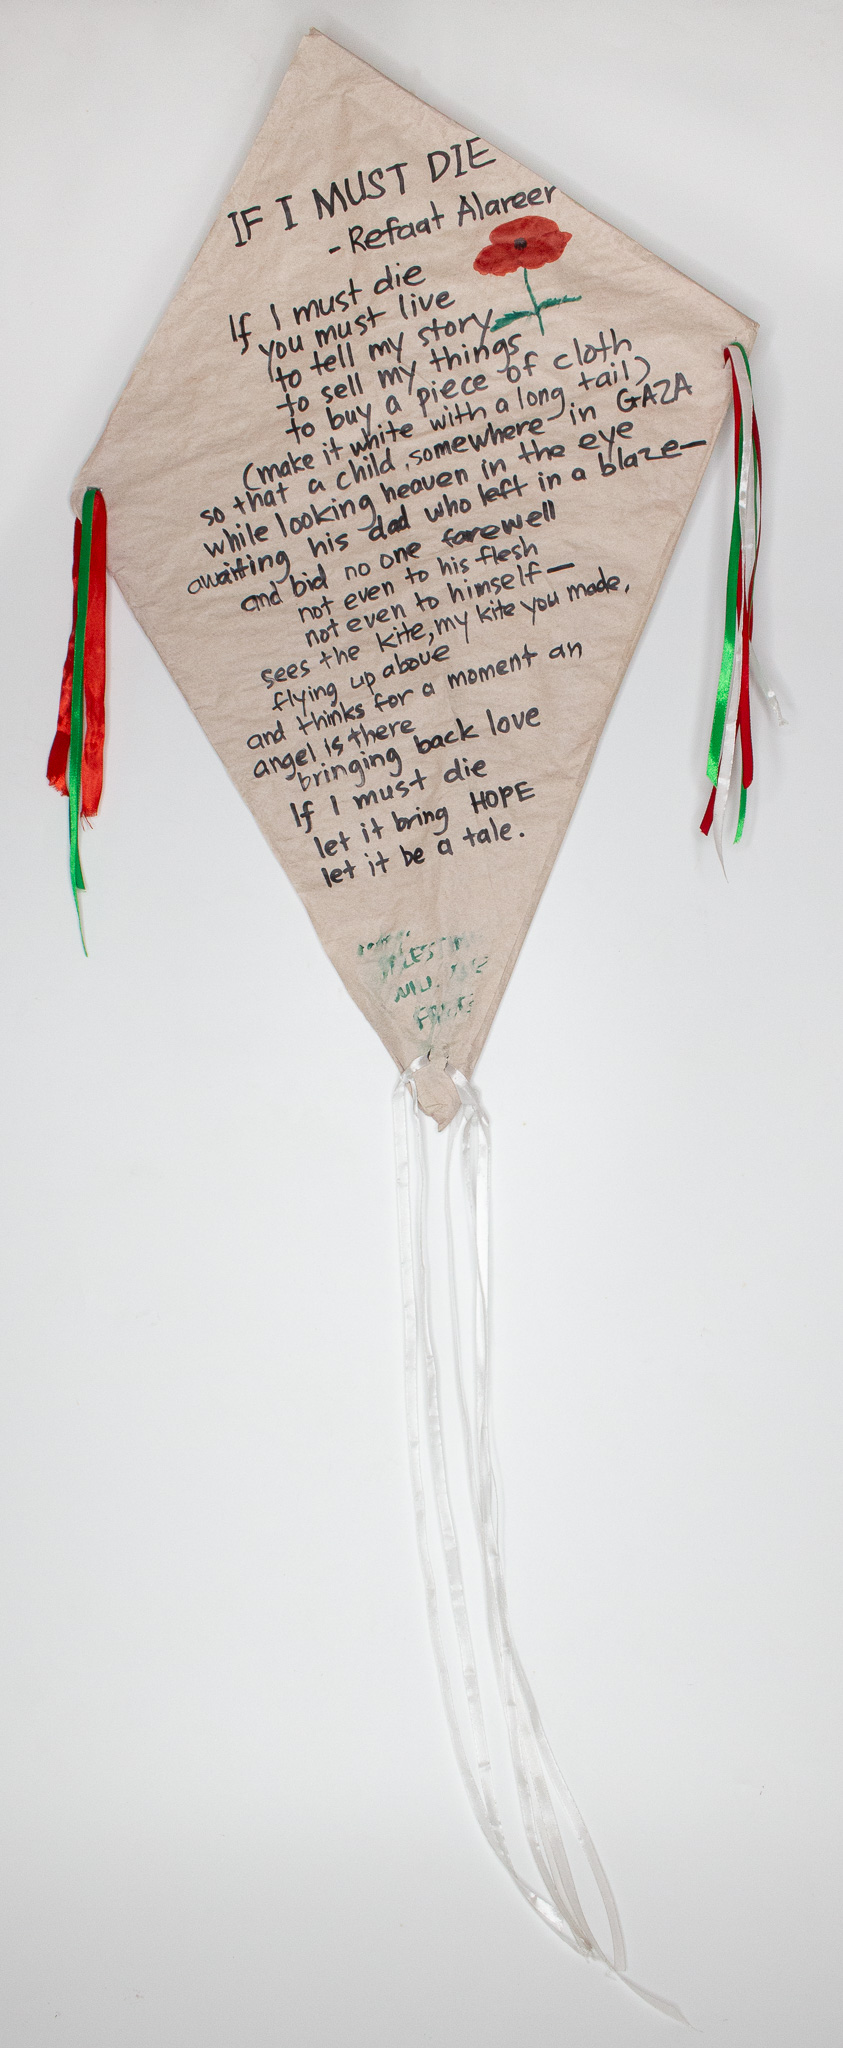 IF I MUST DIE
- Refaat Alareer
If I must die
you must live
to tell my story
to sell my things
to buy a piece of cloth
(make it white with a long tail)
so that a child, somewhere in GAZA
while looking heaven in the eye
awaiting his dad who left in a blaze—
and bid no one farewell
not even to his flesh
not even to himself—
sees the kite, my kite you made,
flying up above
and thinks for a moment an
angel is there
bringing back love
If I must die
let it bring HOPE
let it be a tale.
WILL